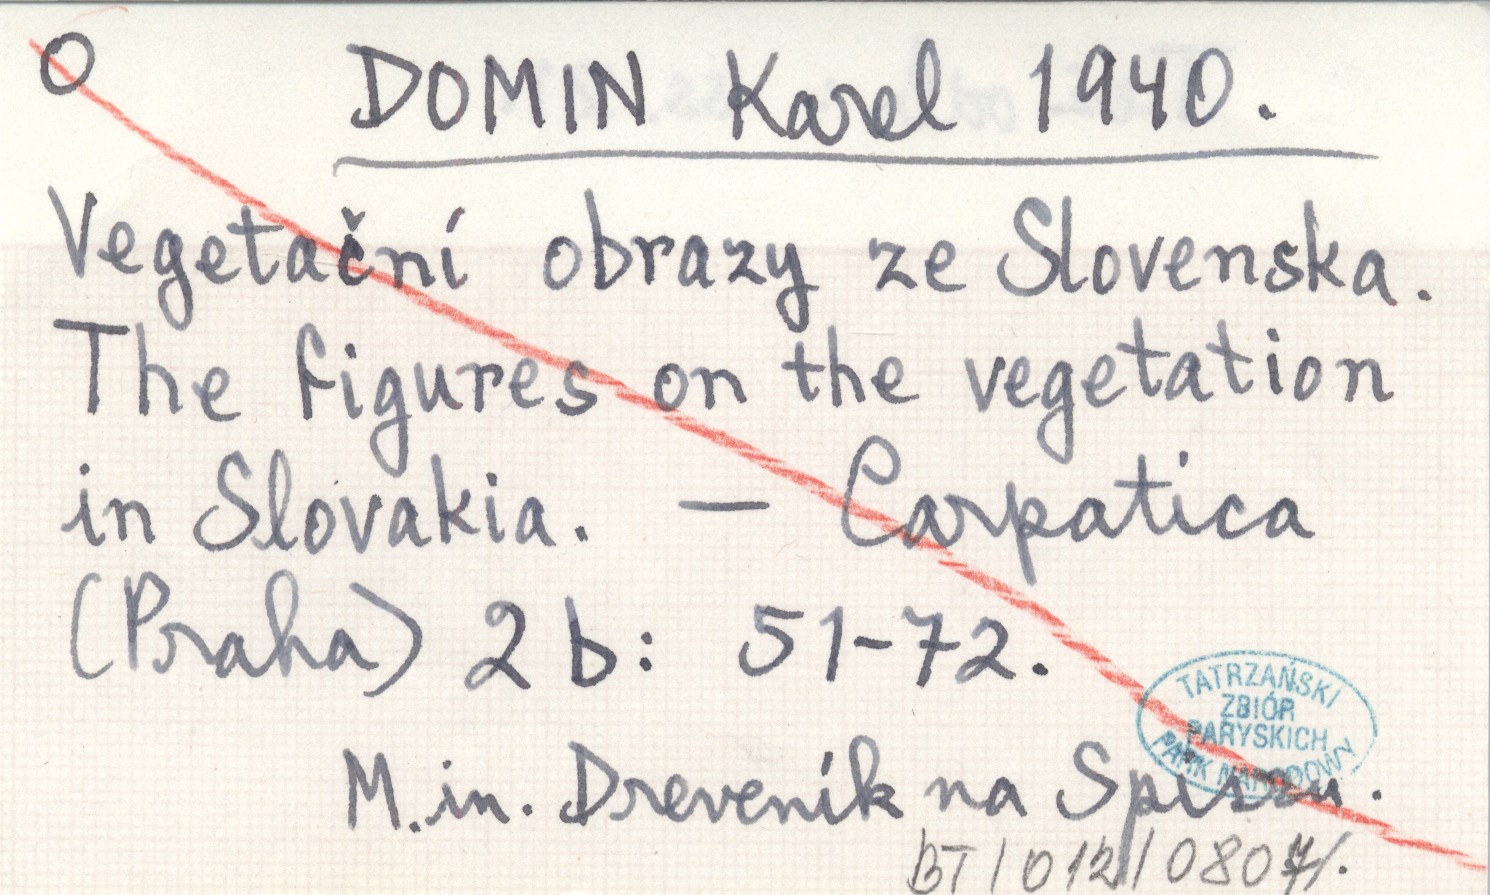 O
DOMIN Karel 1940.
Vegetační obrazy ze Slovenska.
The figures on the vegetation
in Slovakia. — Carpatica
(Praha) 2 b: 51-72.
TATRZAŃSKI
ZBIÓR
PARYSKICH
PARK NARODOWY
M.in. Dreveník na Spiszu.
BT/012/0807/.